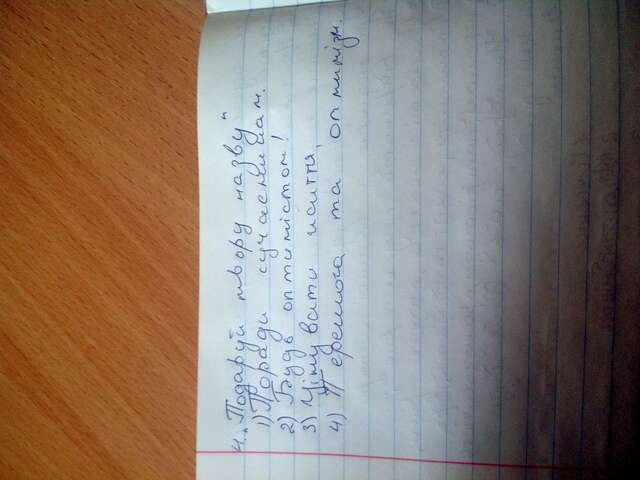 4. „Подаруй твору назву"
1) Поради сучасникам.
2) Будь оптимістом!
3) Цінувати життя,
4) Перемога та оптимізм.